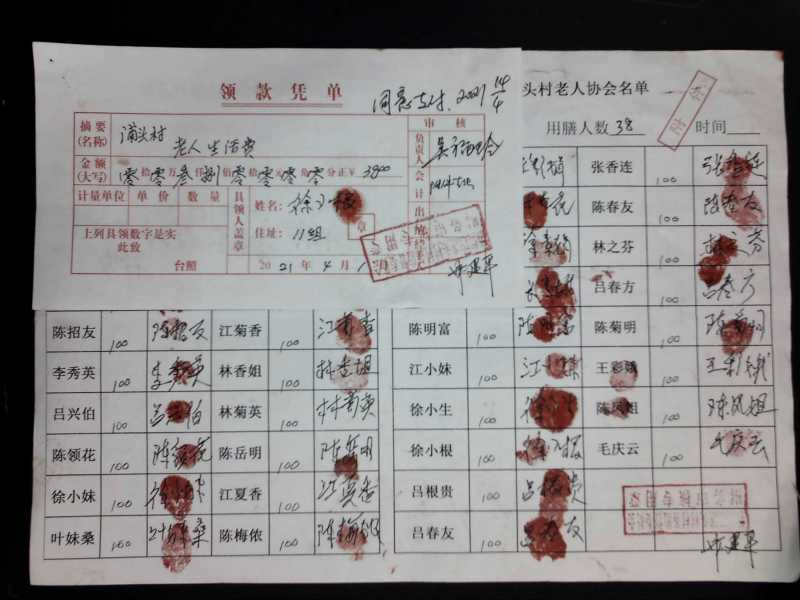 领款凭单
同意支付. 2021 14/4
摘要(名称) 浦头村 老人生活费
审核
金额(大写) 零拾零万叁仟捌佰零拾零元零角零分正¥ 3800
负责人
会计
出纳
计量单位 单价 数量
具领人盖章
姓名: 徐小根
住址: 11组
章
上列具领数字是实
此致
台照
2021年4月1日
头村老人协会名单
用膳人数 38 时间
张香连 100 张香连
陈春友 100 陈春友
林之芬 100 林之芬
吕春方 100 吕春方
陈招友 100 陈招友 江菊香 100 江菊香 陈明富 100 陈明富 陈菊明 100 陈菊明
李秀英 100 李秀英 林香姐 100 林香姐 江小妹 100 江小妹 王彩娥 100 王彩娥
吕兴伯 100 吕兴伯 林菊英 100 林菊英 徐小生 100 陈凤姐 100 陈凤姐
陈领花 100 陈领花 陈岳明 100 陈岳明 徐小根 100 徐小根 毛庆云 100 毛庆云
徐小妹 100 徐小妹 江夏香 100 江夏香 吕根贵 100 吕根贵
叶妹桑 100 叶妹桑 陈梅侬 100 陈梅侬 吕春友 100 吕春友